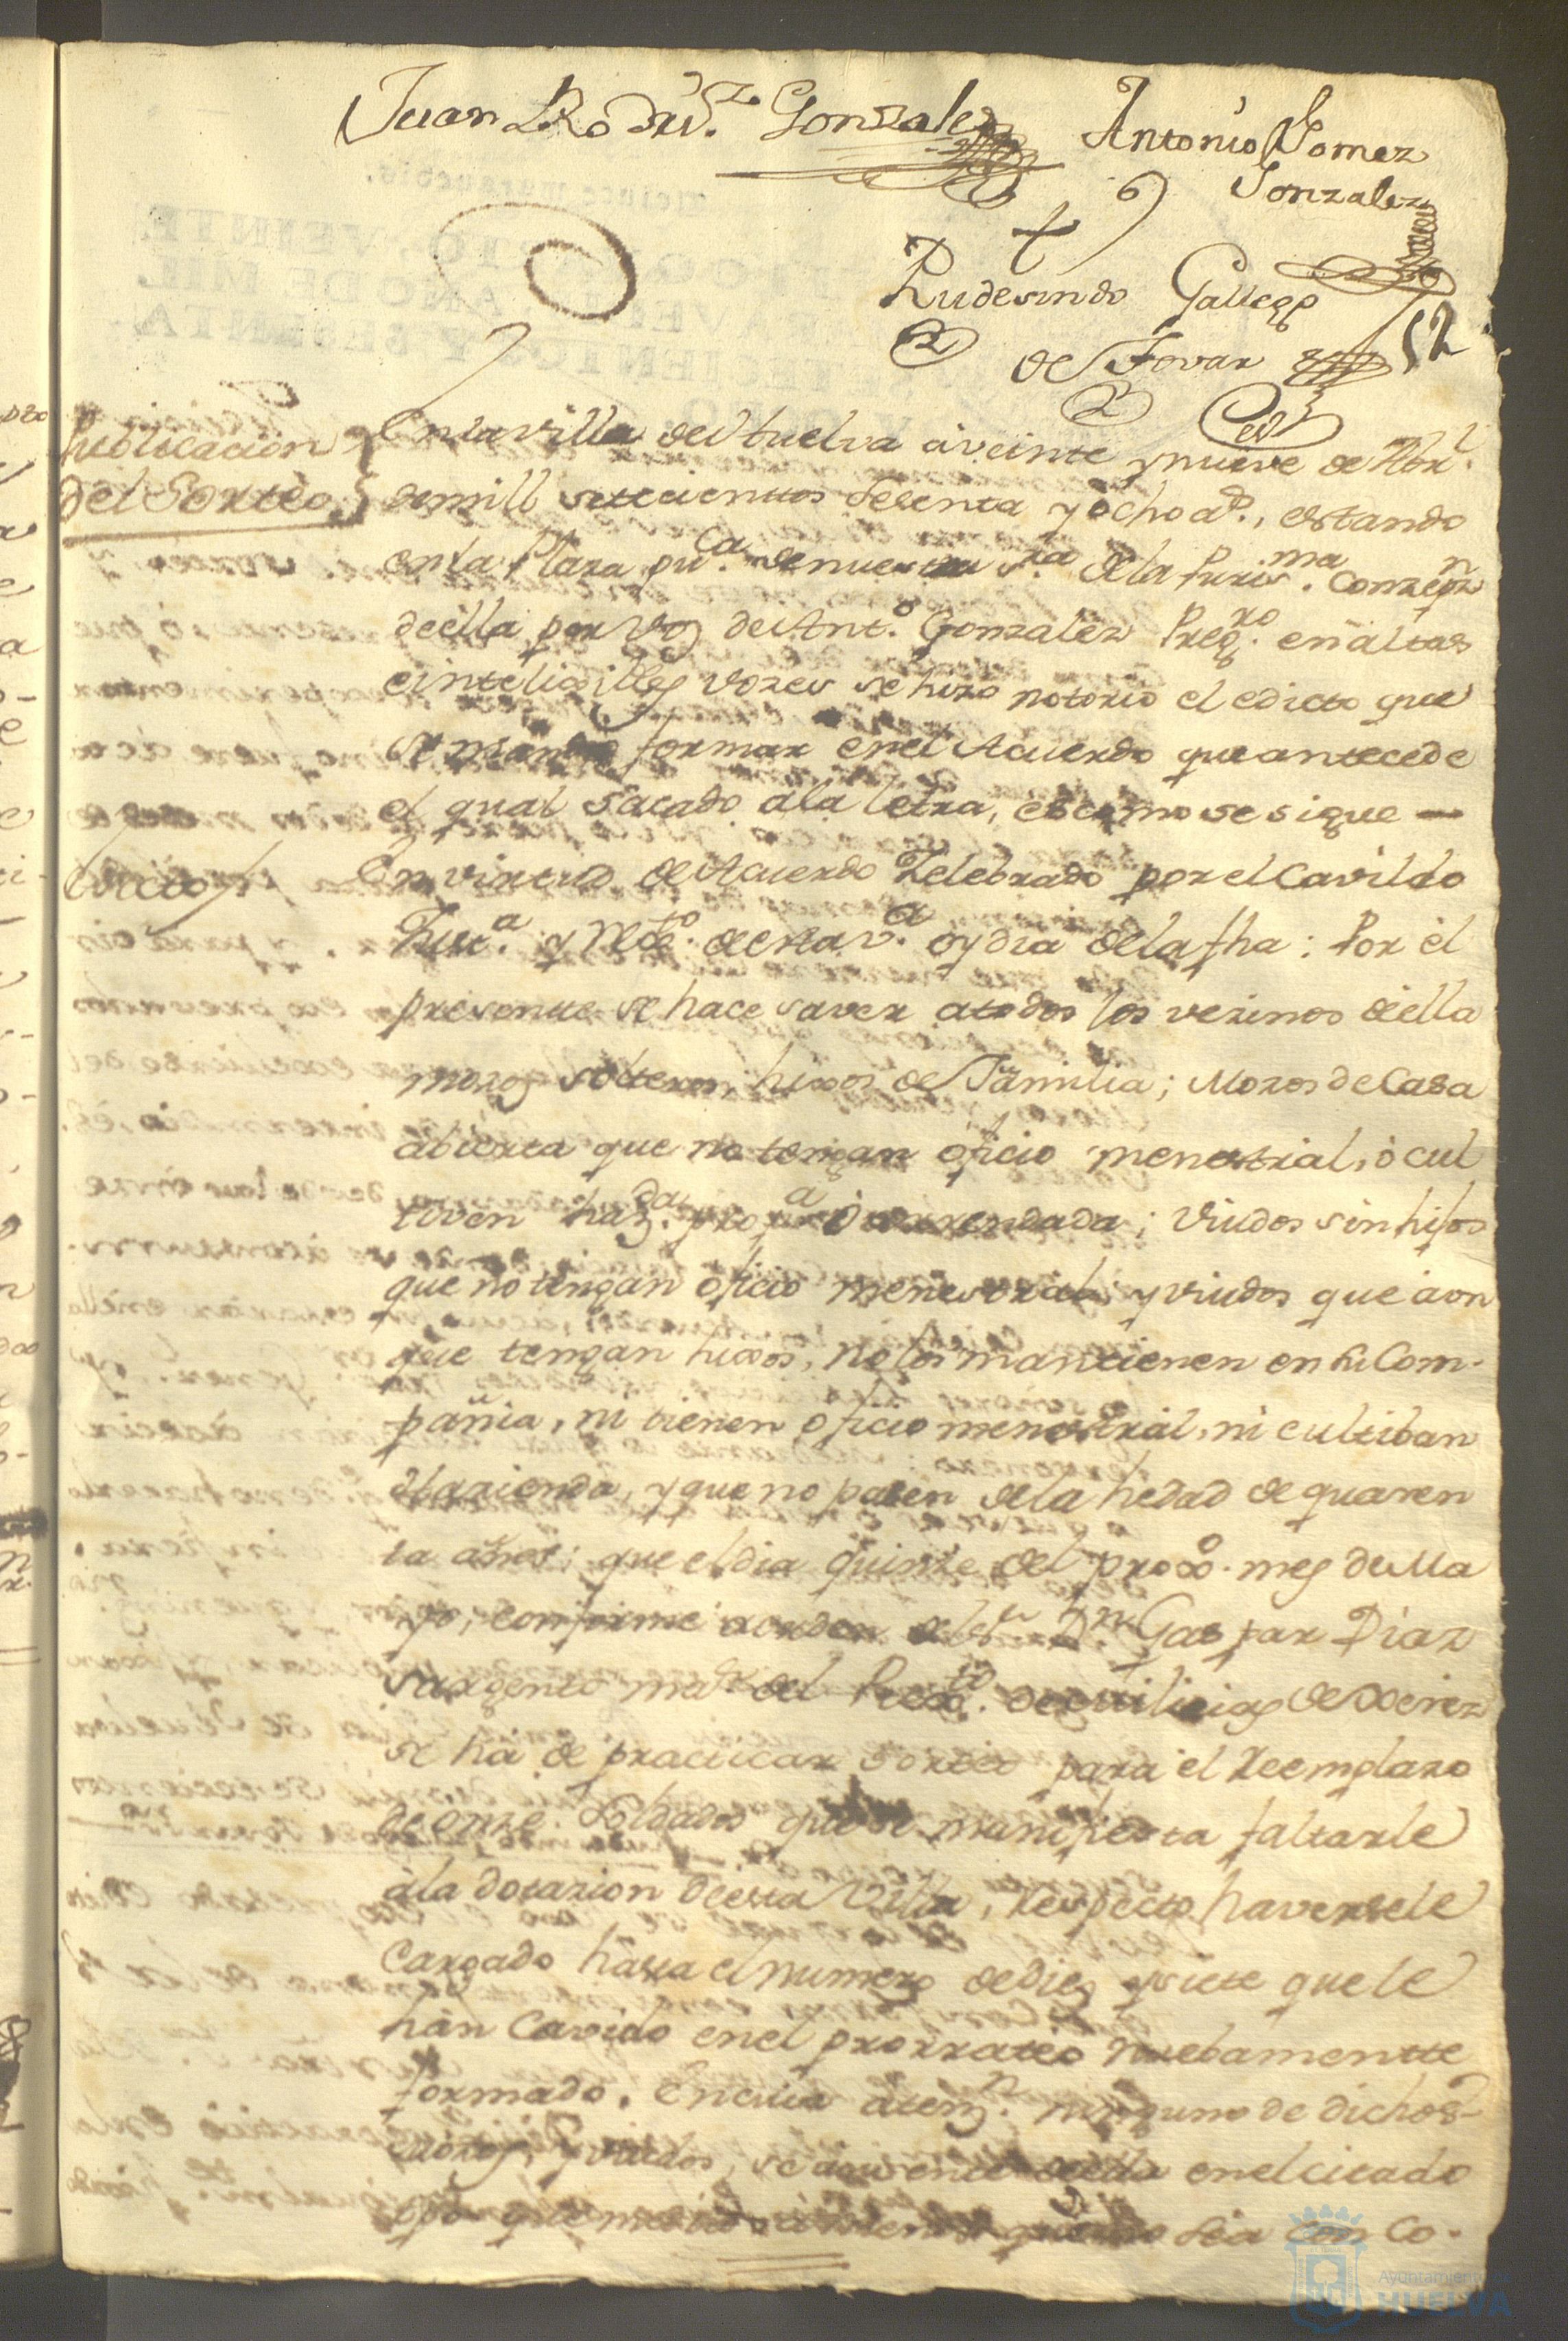 Juan Rodrig.z Gonzalez
Antonio Gomez
Gonzalez
Rudesindo Gallego
de Tovar
52
Publicacion
del Sorteo
En la villa de Huelva à veinte y nueve de Abr.l
de mill setecienttos Sesenta y ocho a.s, estando
en la Plaza pu.ca de nuestra S.ra de la Puris.ma Conzepz.n
de ella por voz de Ant.o Gonzalez Preg.ro en altas
e inteligilles vozes se hizo notorio el edicto que
se mando formar en el Acuerdo que antecede
el qual sacado a la letra, es como se sigue —
Edicto
En virtud de Acuerdo Zelebrado por el Cavildo
Just.a y Reg.to de esta v.a oy dia de la fha: Por el
presentte se hace saver a todos los vezinos de ella
mozos solteros, hixos de Familia; Mozos de Casa
abierta que no tengan oficio menestrial, ò cul
tiven haz.da prop.a ò arrendada; Viudos sin hijos
que no tengan oficio menestrial; y viudos que àon
que tengan hixos, no los mantienen en su Com-
pañia, ni tienen oficio menestrial, ni cultiban
Hazienda, y que no pasen de la hedad de quaren
ta años; que el dia quinze del prox.o mes de Ma
yo, conforme a orden del S.r D.n Gaspar Diaz
Sargento ma.r del Rexim.to de Milicias de Xerez
se ha de practicar sorteo para el Reemplazo
de onze Soldados que se manifiesta faltarle
à la dotazion de esta Villa, Respecto haversele
Cargado hasta el numero de diez y siete que le
hàn Cavido en el prorrateo nuebamentte
formado. En cuia atenz.n ninguno de dichos
mozos, y viudos, se ausente de ella en el citado
tpo que sea con co-
Ayuntamiento de
HUELVA